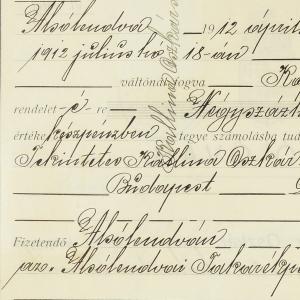 Alsólendva 1912 április
1912 július hó 18-án
váltóndt fogva Ka
rendelet-é-re Négyszázh
értéke készpénzben tegye számolásba tud
Tekintetes Kallina Oszkár
Budapest
Fizetendő Alsólendván
az Alsólendvai Takarékp
Kallina Oszkár